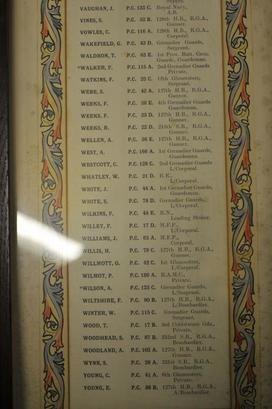 VAUGHAN, J. P.C. 135 C. Royal Navy,
A.B.
VINES, S. P.C. 32 B. 128th H.B., R.G.A.,
Gunner.
VOWLES, C. P.C. 116 A. 129th H.B., R.G.A.,
Corporal.
WAKEFIELD, G. P.C. 43 D. Grenadier Guards,
Sergeant.
WALDRON, T. P.C. 65 E. 1st Prov. Batt. Gren.
Guards, Guardsman.
*WALKER, F. P.C. 115 A. 2nd Grenadier Guards
Private.
WATKINS, F. P.C. 25 C. Gloucesters,
Sergeant.
WEBB, S. P.C. 42 A. 127th H.B., R.G.A.,
Gunner.
WEEKS, F. P.C. 38 E. 4th Grenadier Guards
Guardsman.
WEEKS, F. P.C. 23 D. 127th H.B., R.G.A.,
Gunner.
WEEKS, R. P.C. 22 D. H.B., R.G.A.,
Gunner.
WELLEN, A. P.C. 36 E. 127th H.B., R.G.A.,
Gunner.
WEST, A. P.C. 100 A. 1st Grenadier Guards,
Guardsman.
WESTCOTT, C. P.C. 129 C. 2nd Grenadier Guards
L/Corporal.
WHATLEY, W. P.C. 21 D. R.E.,
L/Corporal.
WHITE, J. P.C. 44 A. 1st Grenadier Guards,
Guardsman.
WHITE, S. P.C. 78 D. Grenadier Guards,
L/Corporal.
WILKINS, F. P.C. 44 E. R.N.,
Leading Stoker.
WILLEY, F. P.C. 17 D. M.F.P.,
L/Corporal.
WILLIAMS, J. P.C. 65 A. M.F.P.,
Corporal.
WILLIS, H. P.C. 79 C. 127th H.B., R.G.A.,
Gunner.
WILLMOTT, G. P.C. 52 E. 1st Gloucesters,
L/Corporal.
WILMOT, F. P.C. 100 A. R.A.M.C.,
Private.
*WILSON, A. P.C. 123 C. Grenadier Guards,
L/Sergeant.
WILTSHIRE, F. P.C. 90 B. 127th H.B., R.G.A.,
L/Bombardier.
WINTER, W. P.C. 115 C. Grenadier Guards,
Sergeant.
WOOD, T. P.C. 17 B. 3rd Coldstream Gds.,
Private.
WOODHEAD, S. P.C. 87 B. S.B., R.G.A.,
Bombardier.
WOODLAND, A. P.C. 102 A. 127th H.B., R.G.A.,
Gunner.
WYNE, S. P.C. 26 A. S.B., R.G.A.,
Bombardier.
YOUNG, C. P.C. 41 A. Gloucesters,
Private.
YOUNG, E. P.C. 86 B. 127th H.B., R.G.A.,
A/Bombardier.